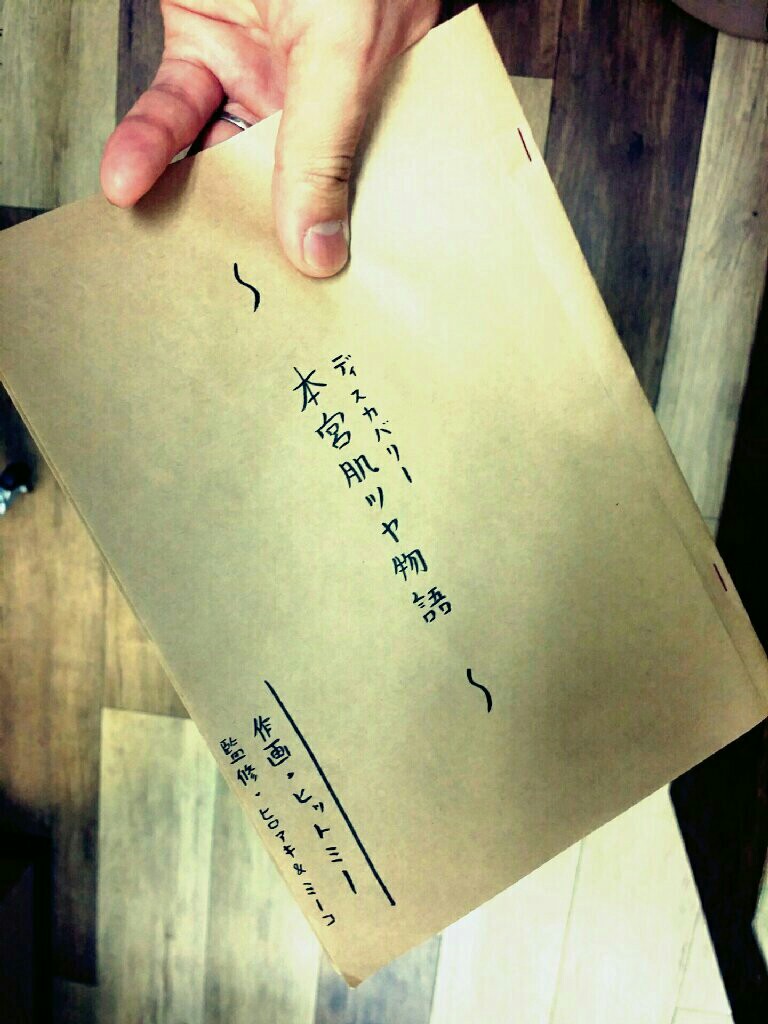 〜
ディスカバリー
本宮肌ツヤ物語
〜
作画・ヒットミー
監修・ヒロアキ&ミーコ